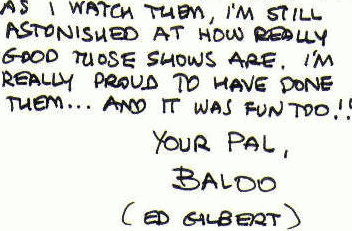 AS I WATCH THEM, I'M STILL
ASTONISHED AT HOW REALLY
GOOD THOSE SHOWS ARE. I'M
REALLY PROUD TO HAVE DONE
THEM... AND IT WAS FUN TOO!!
YOUR PAL,
BALDO
(ED GILBERT)